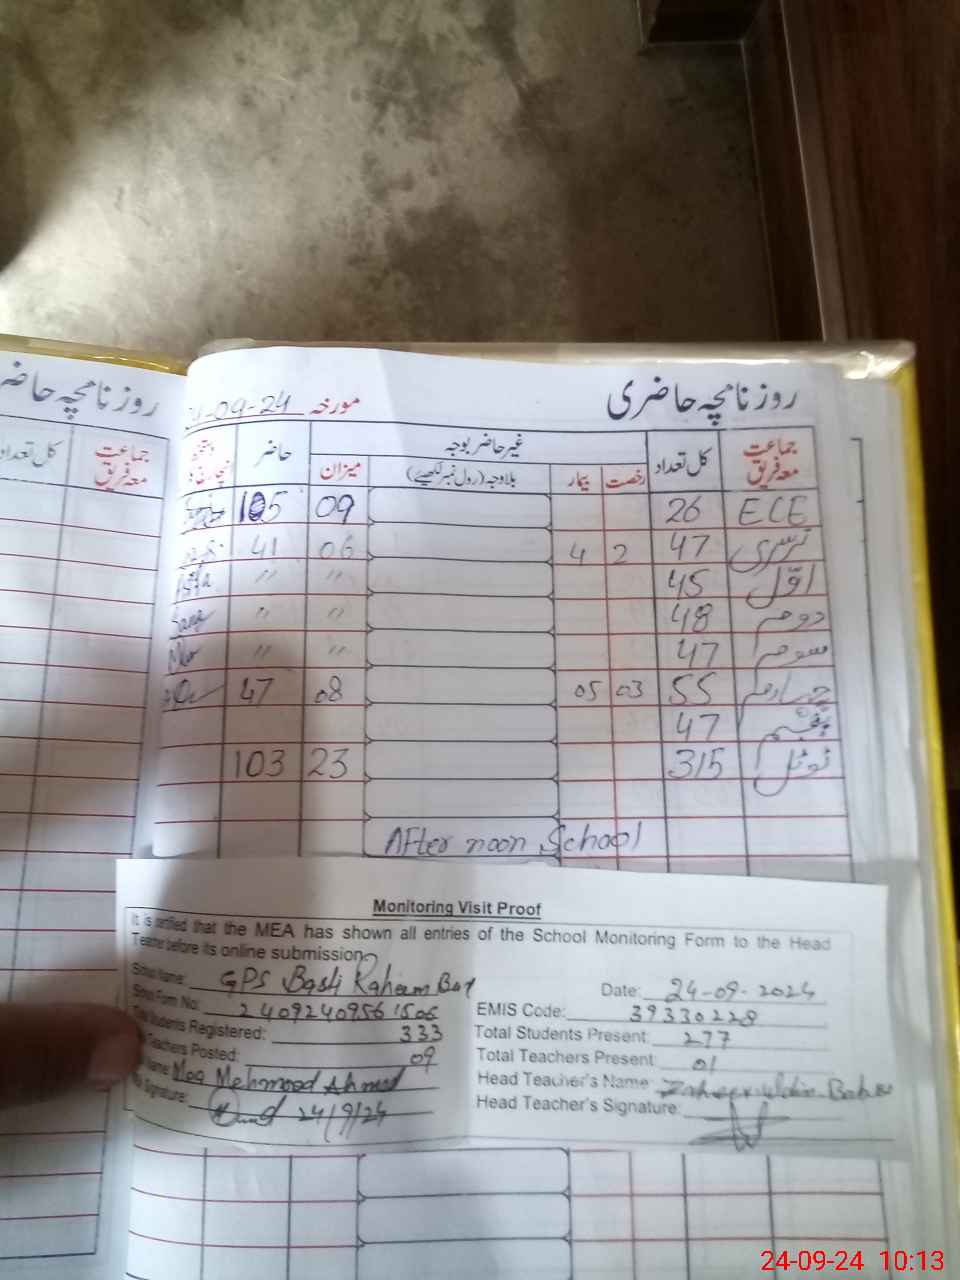 روزنامچہ حاضری
مورخہ 24-09-24
جماعت معہ فریق کل تعداد غیر حاضر بوجہ حاضر
رخصت بیمار بلاوجہ (رول نمبر لکھیے) میزان
ECE 26 09 105
نرسری 47 2 4 06 41
اول 45 〃 〃
دوم 48 〃 〃
سوم 47 〃 〃
چہارم 55 03 05 08 47
پنجم 47
ٹوٹل 315 23 103
After noon School
روزنامچہ حاضر
جماعت معہ فریق کل تعداد
Monitoring Visit Proof
It is certified that the MEA has shown all entries of the School Monitoring Form to the Head
Teacher before its online submission
School Name: GPS Basti Raheem Bux
Date: 24-09-2024
School Form No: 2409240956 1506
EMIS Code: 39330228
Total Students Registered: 333
Total Students Present: 277
Teachers Posted: 09
Total Teachers Present: 01
Name: Mehmood Ahmed
Head Teacher's Name:
Signature: 24/9/24
Head Teacher's Signature:
24-09-24 10:13